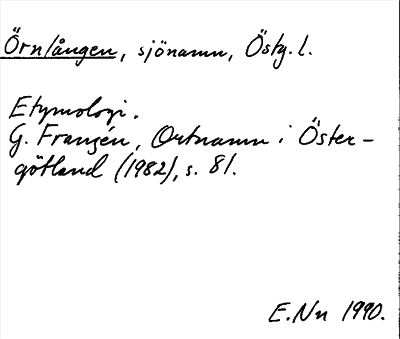 Örnlången, sjönamn, Östg. l.
Etymologi.
G. Franzén, Ortnamn i Öster-
götland (1982), s. 81.
E. Nn 1990.